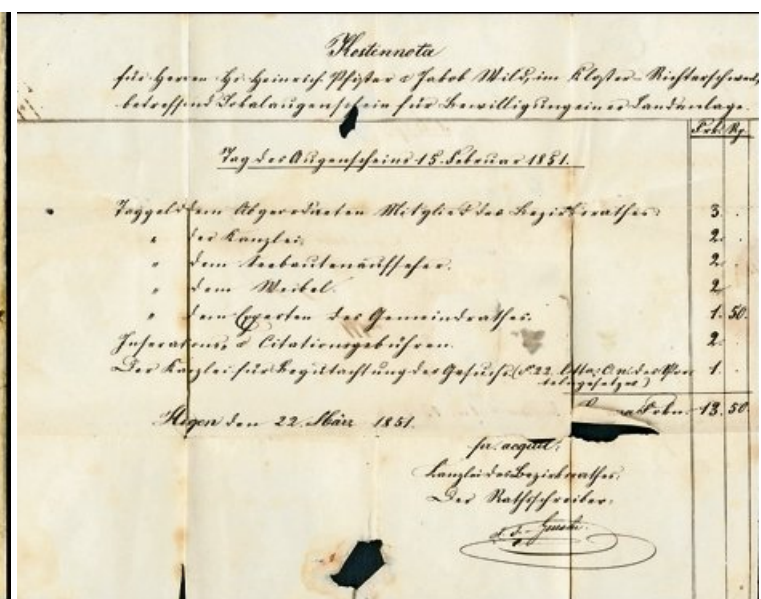 Kostennota
für Herren Hs. Heinrich Pfister & Jakob Wild, im Kloster-Richterschweil,
betreffend Lokalaugenschein für Bewilligung einer Landanlage.
Frk. Rp.
Tag des Augenscheins 15. Februar 1851.
Taggeld dem Abgeordneten Mitglied des Bezirksrathes. 3. .
" der Kanzlei. 2. .
" dem Seebautenaufseher. 2. .
" dem Weibel. 2. .
" dem Experten des Gemeindrathes. 1. 50.
Inserations- & Citationsgebühren. 2. .
Der Kanzlei für Begutachtung des Gesuchs (§ 22. litta: des 1. .
Frkn. 13. 50
Horgen den 22. März 1851.
pr. acquit:
Kanzlei des Bezirksrathes:
Der Rathsschreiber: